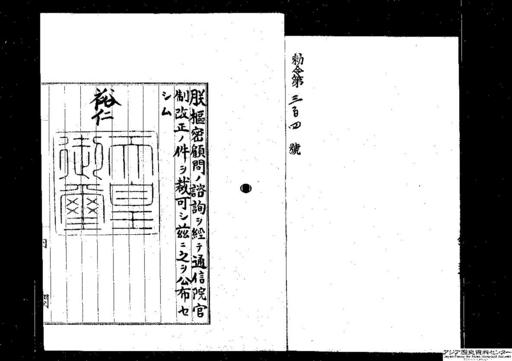 勅令第三百四號
朕樞密顧問ノ諮詢ヲ經テ通信院官
制改正ノ件ヲ裁可シ茲ニ之ヲ公布セ
シム
裕仁
天皇
御璽
内閣
アジア歴史資料センター